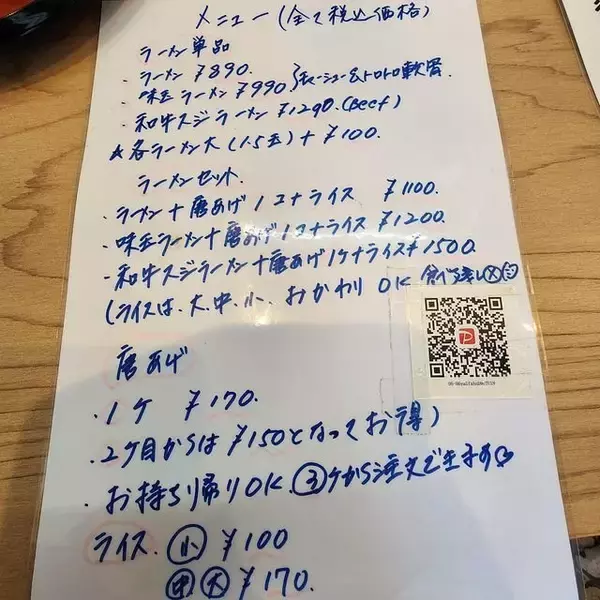 メニュー(全て税込価格)
ラーメン単品
・ラーメン ¥890.
・味玉ラーメン ¥990 } チャーシュー&トロトロ軟骨.
・和牛スジラーメン ¥1290.(Beef)
☆各ラーメン大(1.5玉)+¥100.
ラーメンセット.
・ラーメン+唐あげ1コ+ライス ¥1100.
・味玉ラーメン+唐あげ1コ+ライス ¥1200.
・和牛スジラーメン+唐あげ1ケ+ライス¥1500.
(ライスは、大、中、小、おかわりOK
唐あげ
・1ケ ¥170.
・2ケ目からは¥150となってお得)
・お持ち帰りOK.③ケから注文できます
ライス.小 ¥100
中 大 ¥170.